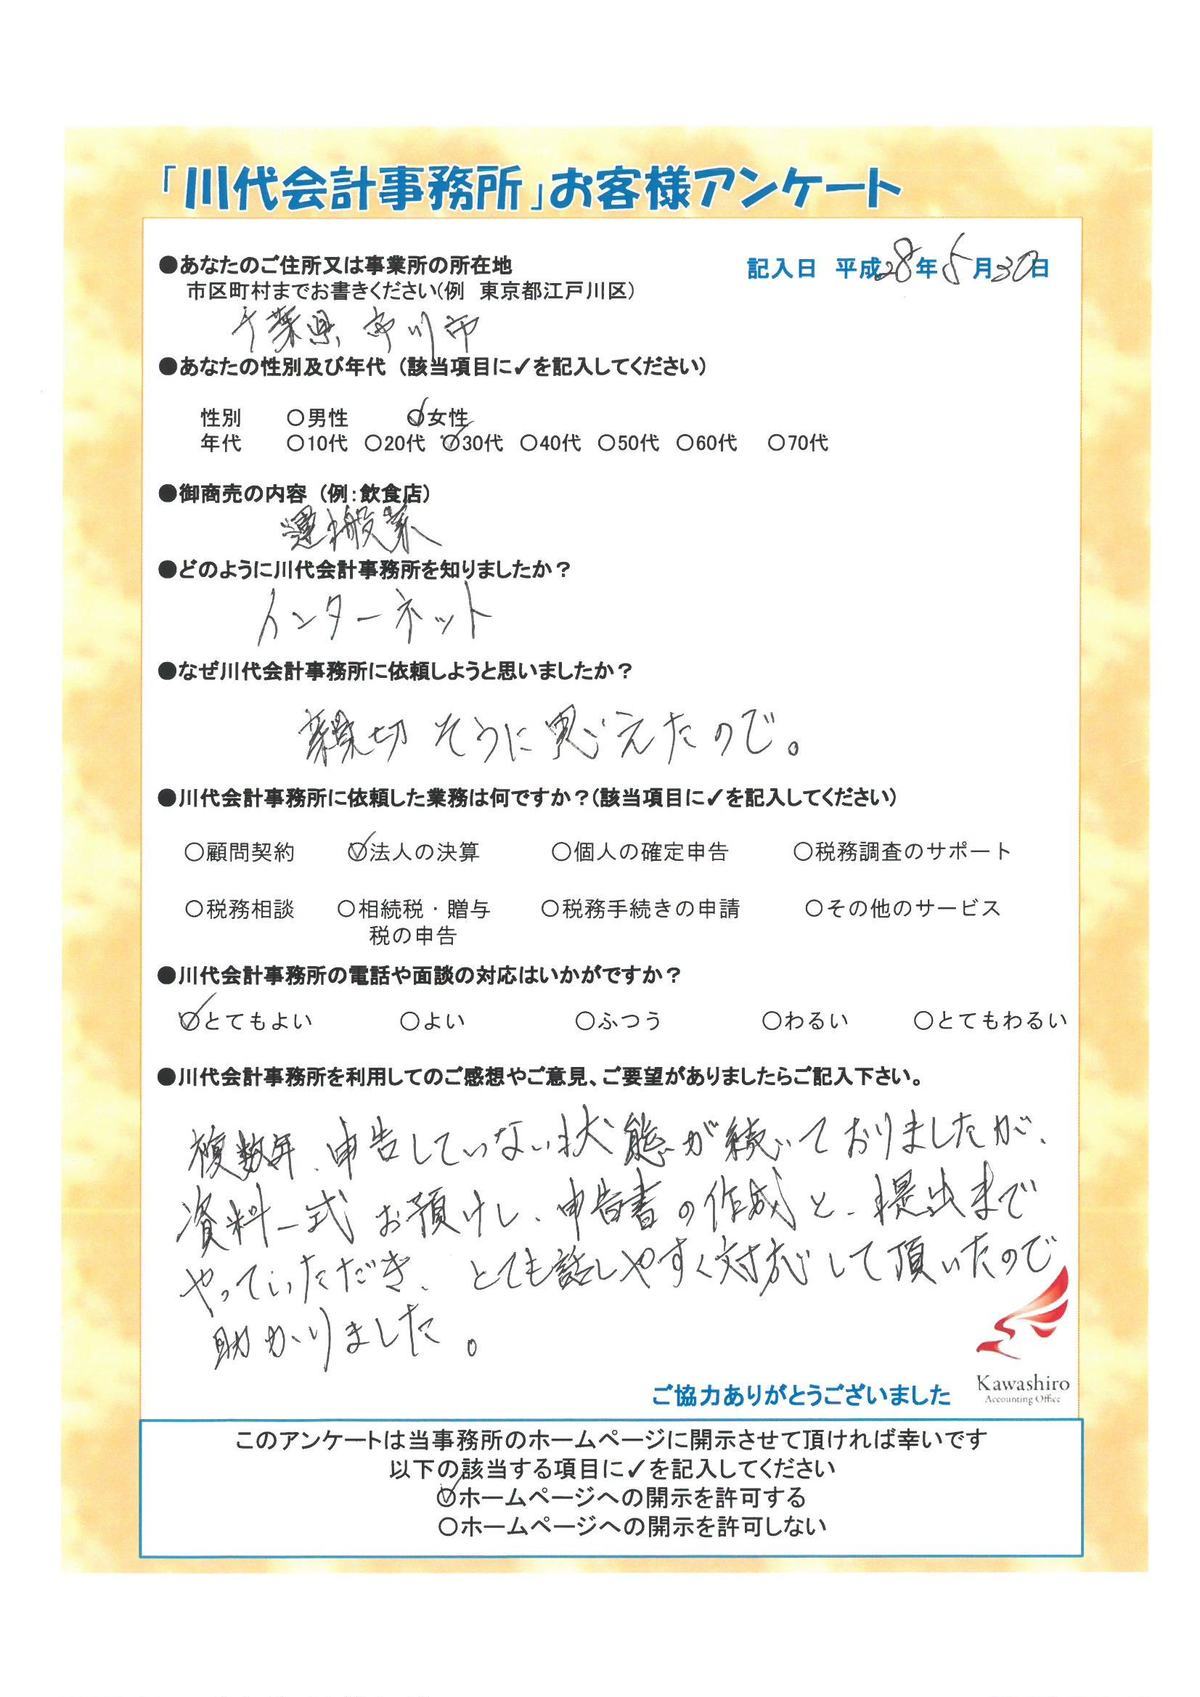 「川代会計事務所」お客様アンケート
●あなたのご住所又は事業所の所在地
記入日 平成28年5月30日
市区町村までお書きください(例 東京都江戸川区)
千葉県 市川市
●あなたの性別及び年代 (該当項目に✓を記入してください)
性別 ○男性 ✓女性
年代 ○10代 ○20代 ✓30代 ○40代 ○50代 ○60代 ○70代
●御商売の内容 (例:飲食店)
運搬業
●どのように川代会計事務所を知りましたか?
インターネット
●なぜ川代会計事務所に依頼しようと思いましたか?
親切そうに思えたので。
●川代会計事務所に依頼した業務は何ですか?(該当項目に✓を記入してください)
○顧問契約 ✓法人の決算 ○個人の確定申告 ○税務調査のサポート
○税務相談 ○相続税・贈与 ○税務手続きの申請 ○その他のサービス
税の申告
●川代会計事務所の電話や面談の対応はいかがですか?
✓とてもよい ○よい ○ふつう ○わるい ○とてもわるい
●川代会計事務所を利用してのご感想やご意見、ご要望がありましたらご記入下さい。
複数年、申告していない状態が続いておりましたが、
資料一式お預けし、申告書の作成と、提出まで
やっていただき、とても話しやすく対応して頂いたので
助かりました。
Kawashiro
Accounting Office
ご協力ありがとうございました
このアンケートは当事務所のホームページに開示させて頂ければ幸いです
以下の該当する項目に✓を記入してください
✓ホームページへの開示を許可する
○ホームページへの開示を許可しない